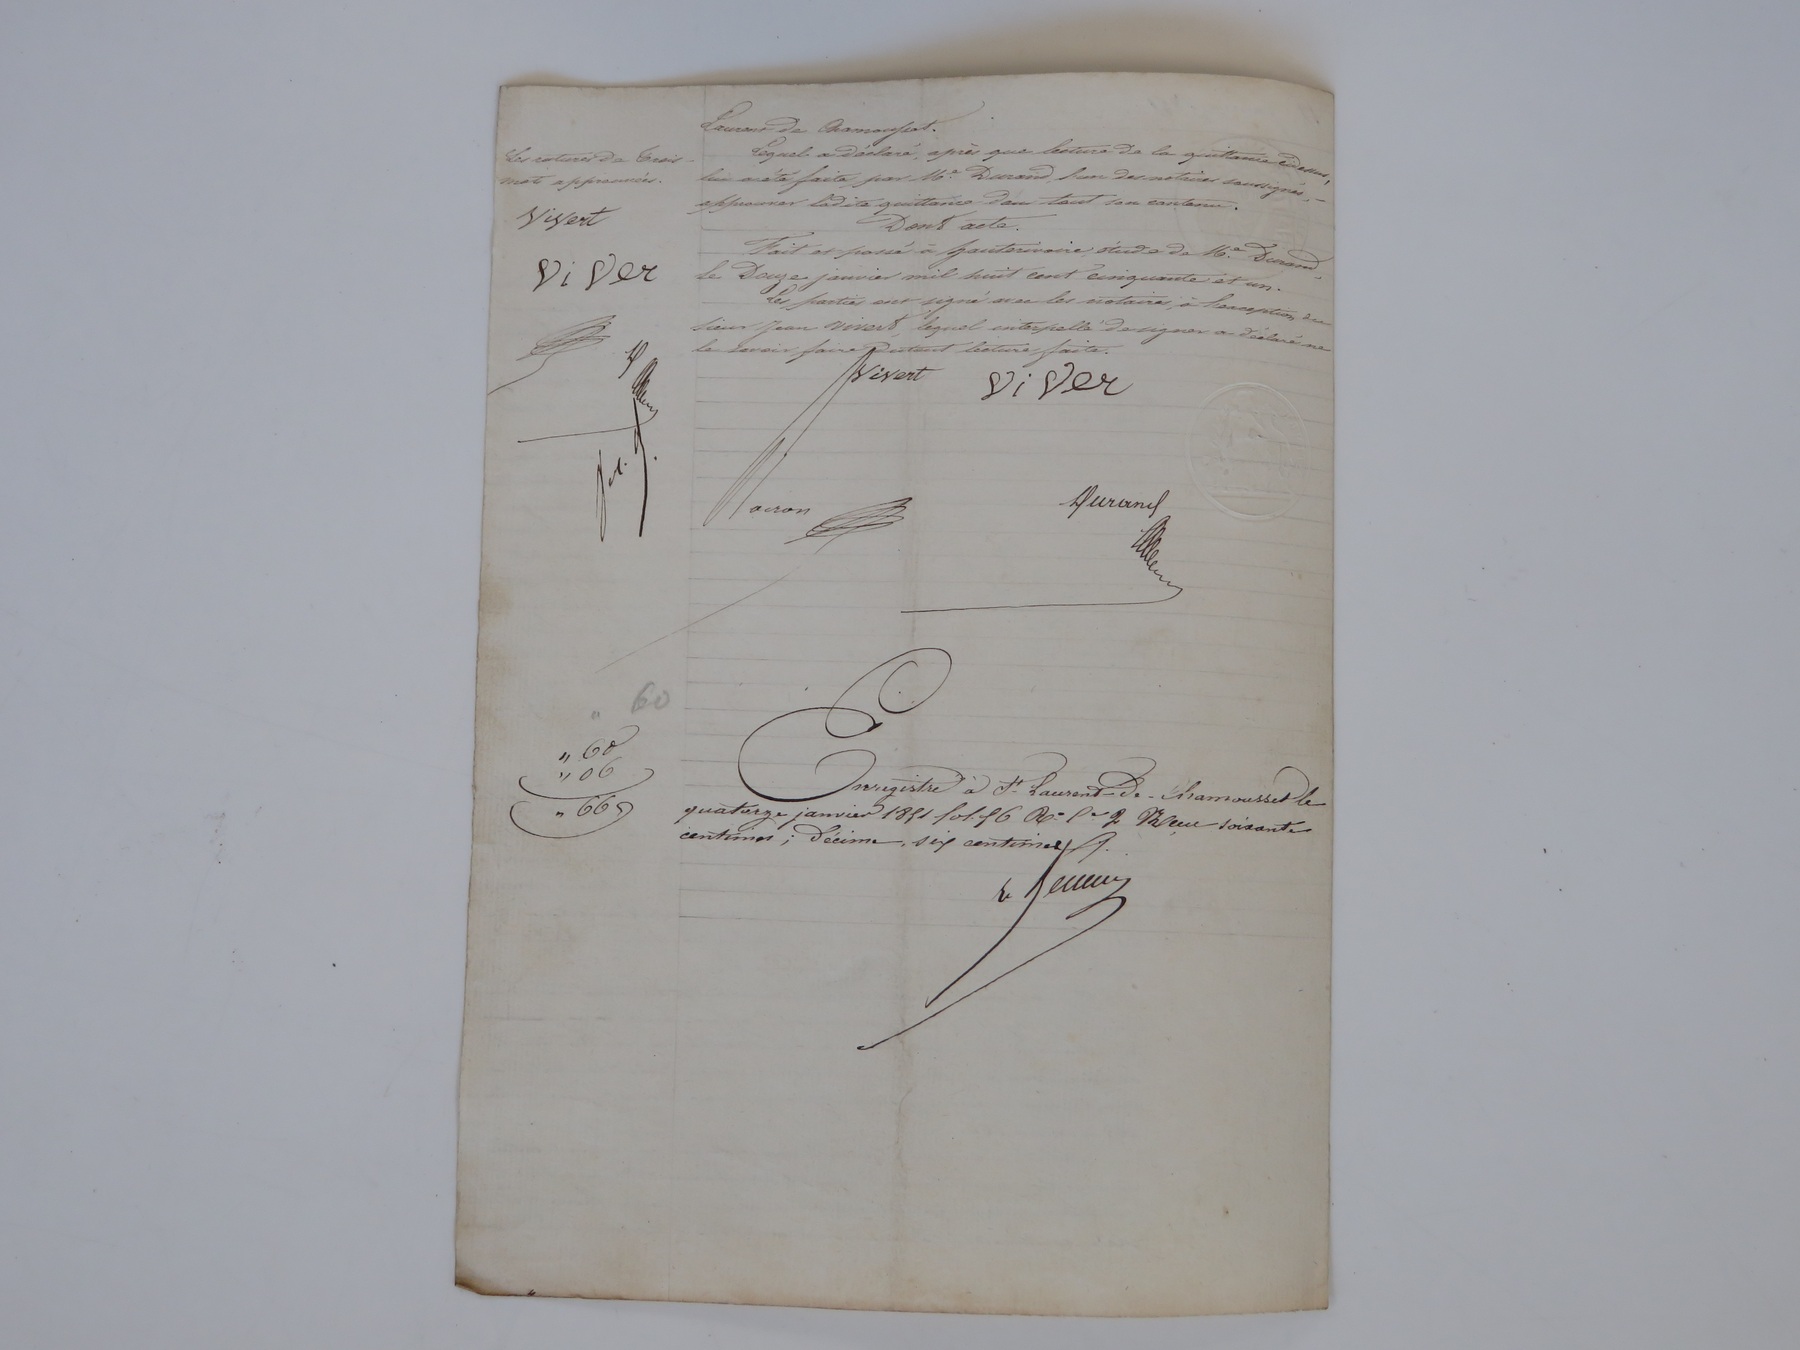 Laurent de Chamousset.
Lequel a déclaré, après que lecture de la quittance ci dessus,
lui a été faite, par Me. Durand, l'un des notaires soussignés,
approuver ladite quittance dans tout son contenu.
Dont acte.
Fait et passé à hauterivoire, étude de Me. Durand,
le Douze janvier mil huit cent cinquante et un.
Les parties ont signé avec les notaires, à l'exception du
sieur Jean Vivert, lequel interpellé de signer a déclaré ne
le savoir faire lecture faite.
Les ratures de trois
mots approuvées.
Vivert
ViVer
Vivert ViVer
Durand
60
" 60
" 06
" 66
Enregistré à St. Laurent-De-Chamousset le
quatorze janvier 1851 fol. 56 Ro. Ce 2 Reçu soixante
centimes; Décime, six centimes